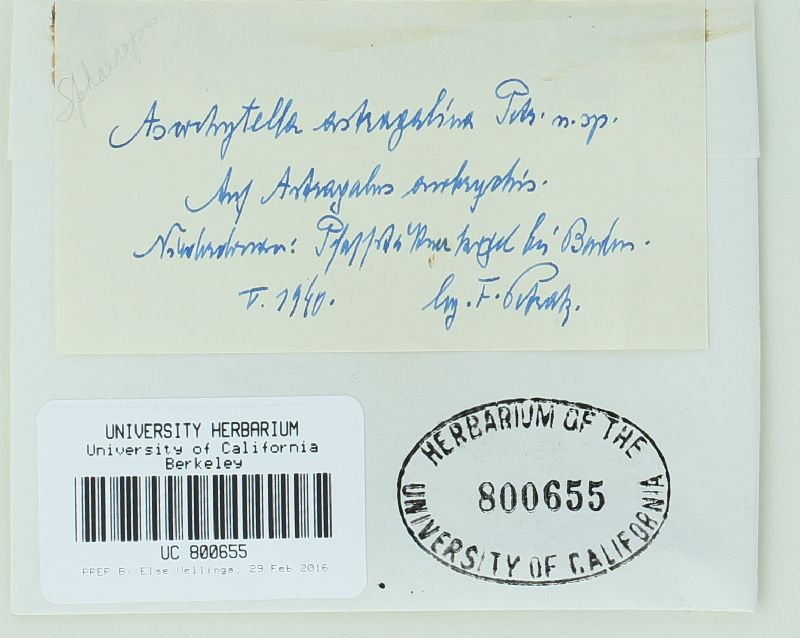 Sphaerop
Ascochytella astragalina Petr. n. sp.
Auf Astragalus onobrychis.
Niederdonau: Pfaffstättner Kogel bei Baden.
V. 1940. lg. F. Petrak.
UNIVERSITY HERBARIUM
University of California
Berkeley
UC 800655
PREP By Else Vellinga, 29 Feb 2016
HERBARIUM OF THE
800655
UNIVERSITY OF CALIFORNIA